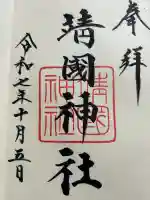 奉拝
靖國神社
靖國神社
令和七年十月五日